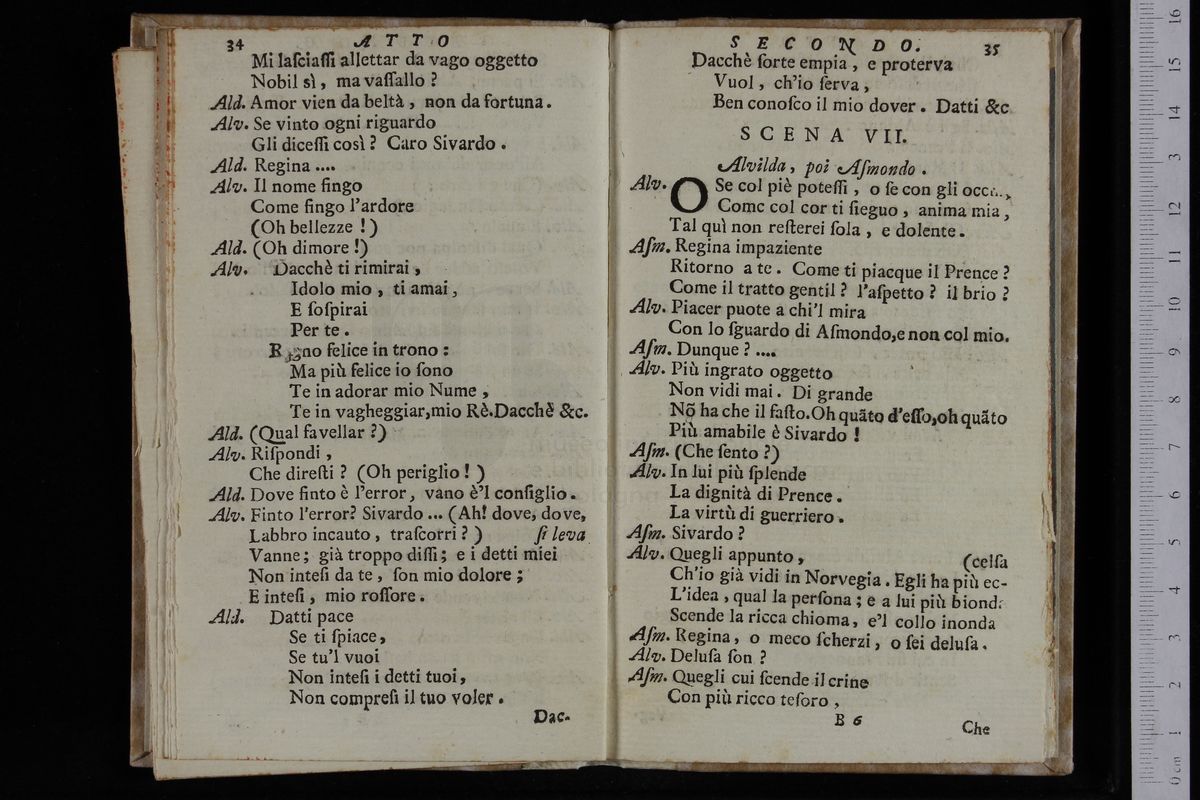 34 ATTO
Mi laſciaſſi allettar da vago oggetto
Nobil sì, ma vaſſallo?
Ald. Amor vien da beltà, non da fortuna.
Alv. Se vinto ogni riguardo
Gli diceſſi così? Caro Sivardo.
Ald. Regina ....
Alv. Il nome fingo
Come fingo l'ardore
(Oh bellezze!)
Ald. (Oh dimore!)
Alv. Dacchè ti rimirai,
Idolo mio, ti amai,
E ſoſpirai
Per te.
Regno felice in trono:
Ma più felice io ſono
Te in adorar mio Nume,
Te in vagheggiar,mio Rè.Dacchè &c.
Ald. (Qual favellar?)
Alv. Riſpondi,
Che direſti? (Oh periglio!)
Ald. Dove finto è l'error, vano è'l conſiglio.
Alv. Finto l'error? Sivardo ... (Ah! dove, dove,
Labbro incauto, traſcorri?) ſi leva
Vanne; già troppo diſſi; e i detti miei
Non inteſi da te, ſon mio dolore;
E inteſi, mio roſſore.
Ald. Datti pace
Se ti ſpiace,
Se tu'l vuoi
Non inteſi i detti tuoi,
Non compreſi il tuo voler.
Dac-
SECONDO. 35
Dacchè ſorte empia, e proterva
Vuol, ch'io ſerva,
Ben conoſco il mio dover. Datti &c
SCENA VII.
Alvilda, poi Aſmondo.
Alv. O Se col piè poteſſi, o ſe con gli
Come col cor ti ſieguo, anima mia,
Tal quì non reſterei ſola, e dolente.
Aſm. Regina impaziente
Ritorno a te. Come ti piacque il Prence?
Come il tratto gentil? l'aſpetto? il brio?
Alv. Piacer puote a chi'l mira
Con lo ſguardo di Aſmondo,e non col mio.
Aſm. Dunque? ....
Alv. Più ingrato oggetto
Non vidi mai. Di grande
Nõ ha che il faſto.Oh quãto d'eſſo,oh quãto
Più amabile è Sivardo!
Aſm. (Che ſento?)
Alv. In lui più ſplende
La dignità di Prence.
La virtù di guerriero.
Aſm. Sivardo?
Alv. Quegli appunto, (celſa
Ch'io già vidi in Norvegia. Egli ha più ec-
L'idea, qual la perſona; e a lui più
Scende la ricca chioma, e'l collo inonda
Aſm. Regina, o meco ſcherzi, o ſei deluſa.
Alv. Deluſa ſon?
Aſm. Quegli cui ſcende il crine
Con più ricco teſoro,
B 6
Che
0 cm 1 2 3 4 5 6 7 8 9 10 11 12 13 14 15 16